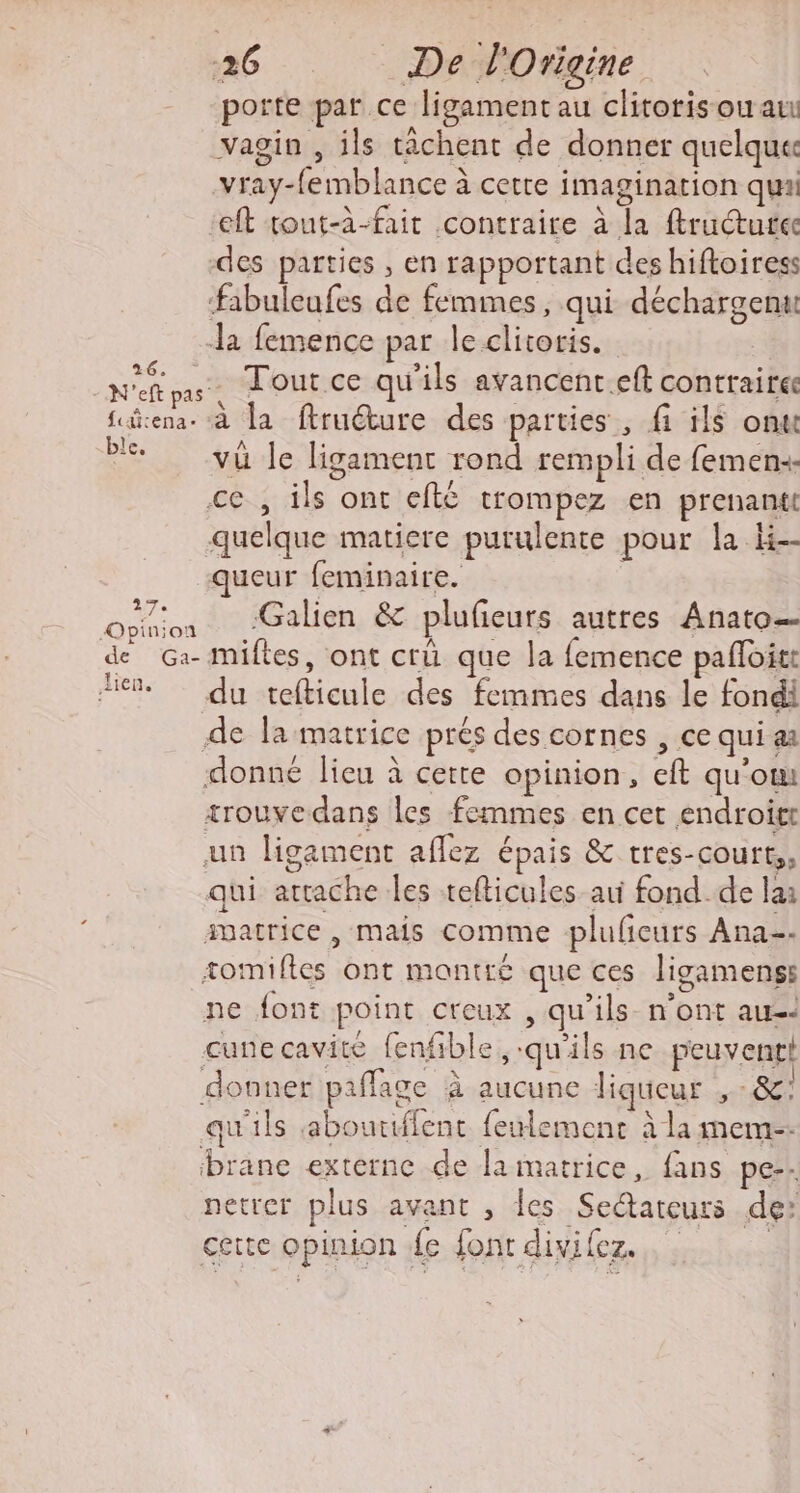 26 De l'Origine
porte par ce ligament au clitoris ou au
vagin, ils tâchent de donner quelque
vray-ſemblance à cette imagination qui
eſt tout-à-fait contraire à la ſtructure
des parties, en rapportant des hiſtoires
fabuleuſes de femmes, qui déchargent
la ſemence par le clitoris.
26.
N'eſt pas
ſoûtena-
ble.
Tout ce qu'ils avancent eſt contraire
à la ſtructure des parties, ſi ils ont
vû le ligament rond rempli de ſemen-
ce, ils ont eſté trompez en prenant
quelque matiere purulente pour la li-
queur ſeminaire.
27.
Opinion
de Ga-
lien.
Galien & pluſieurs autres Anato-
miſtes, ont crû que la ſemence paſſoit
du teſticule des femmes dans le fond
de la matrice prés des cornes, ce qui a
donné lieu à cette opinion, eſt qu'on
trouve dans les femmes en cet endroit
un ligament aſſez épais & tres-court,
qui attache les teſticules au fond de la
matrice, mais comme pluſieurs Ana-
tomiſtes ont montré que ces ligamens
ne ſont point creux, qu'ils n'ont au-
cune cavité ſenſible, qu'ils ne peuvent
donner paſſage à aucune liqueur, &
qu'ils aboutiſſent ſeulement à la mem-
brane externe de la matrice, ſans pe-
netrer plus avant, les Sectateurs de
cette opinion ſe ſont diviſez.